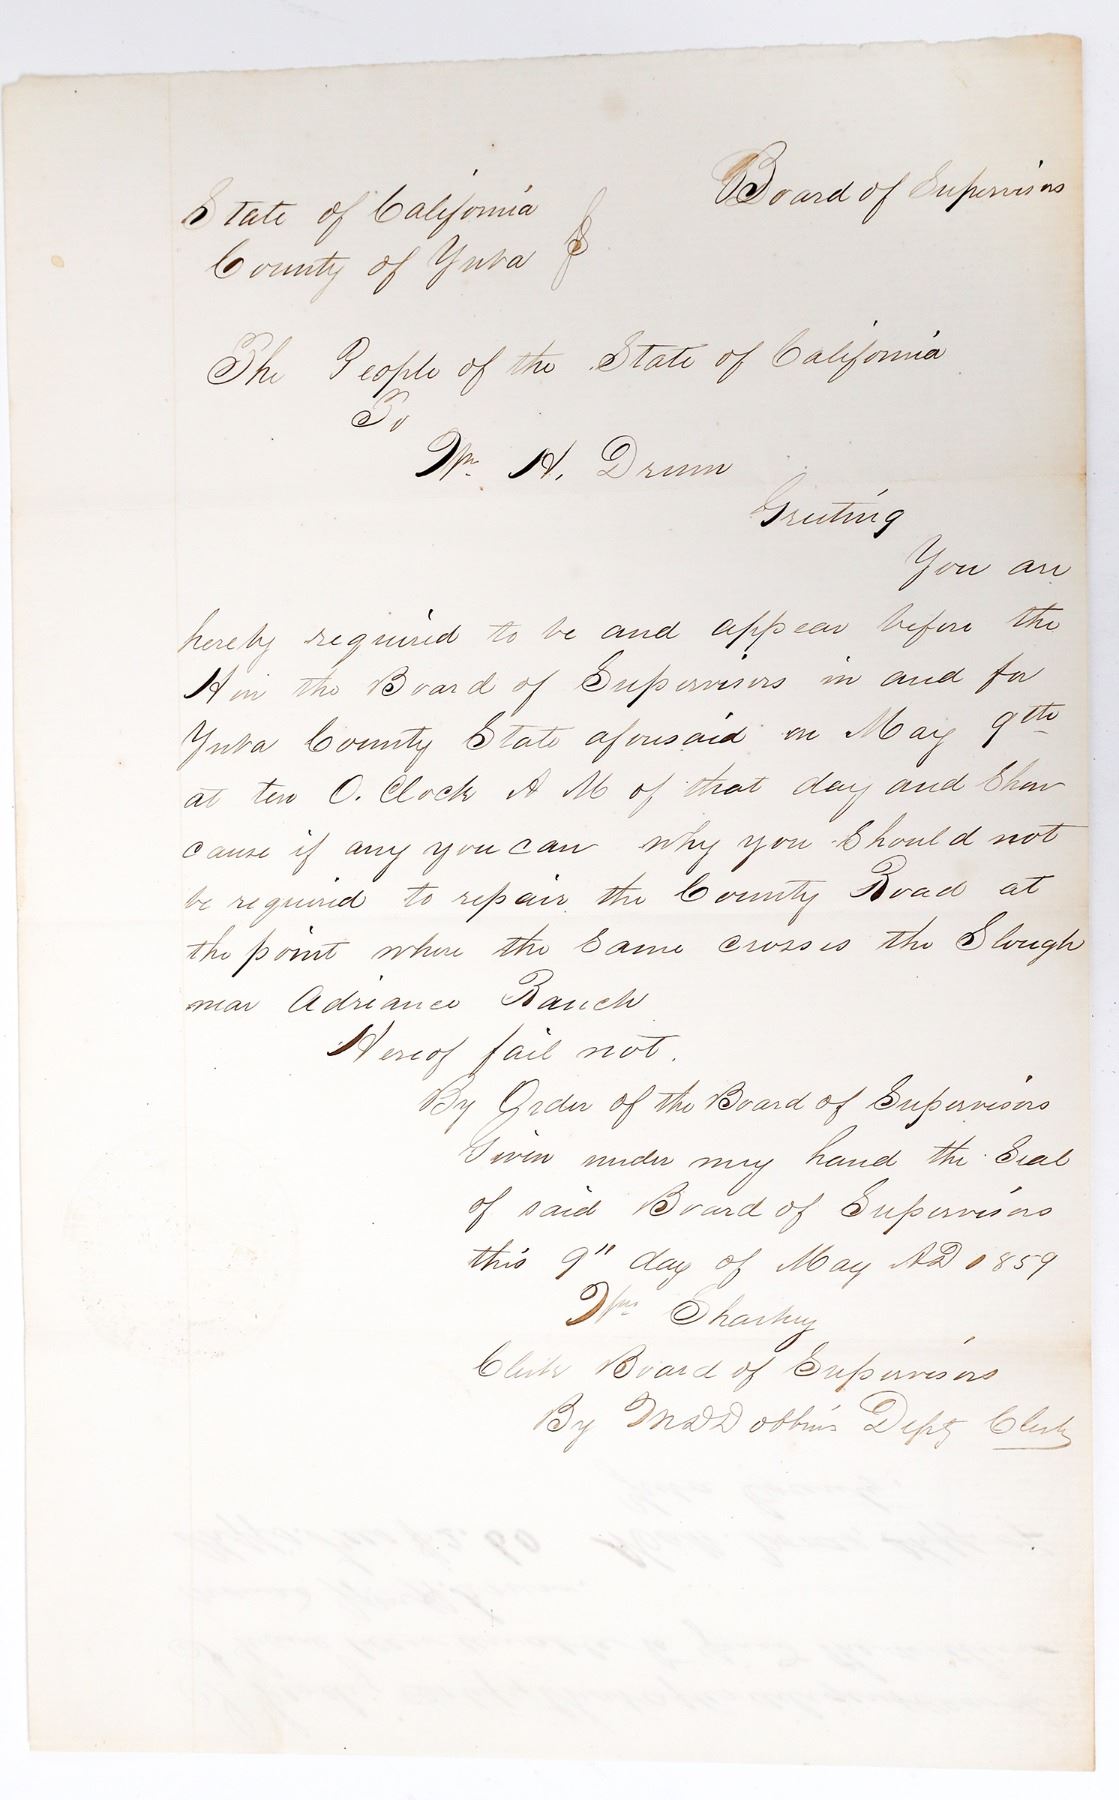 Board of Supervisors
State of California
County of Yuba
The People of the State of California
To
Wm. H. Drum
Greeting
You are
hereby required to be and appear before the
Hon the Board of Supervisors in and for
Yuba County State aforesaid on May 9th
at ten O. Clock A M of that day and Show
cause if any you can why you Should not
be required to repair the County Road at
the point where the Same crosses the Slough
near Adriance Ranch
Hereof fail not.
By Order of the Board of Supervisors
Given under my hand the Seal
of said Board of Supervisors
this 9" day of May AD 1859
Wm Sharkey
Clerk Board of Supervisors
By Dobbins Depty Clerk